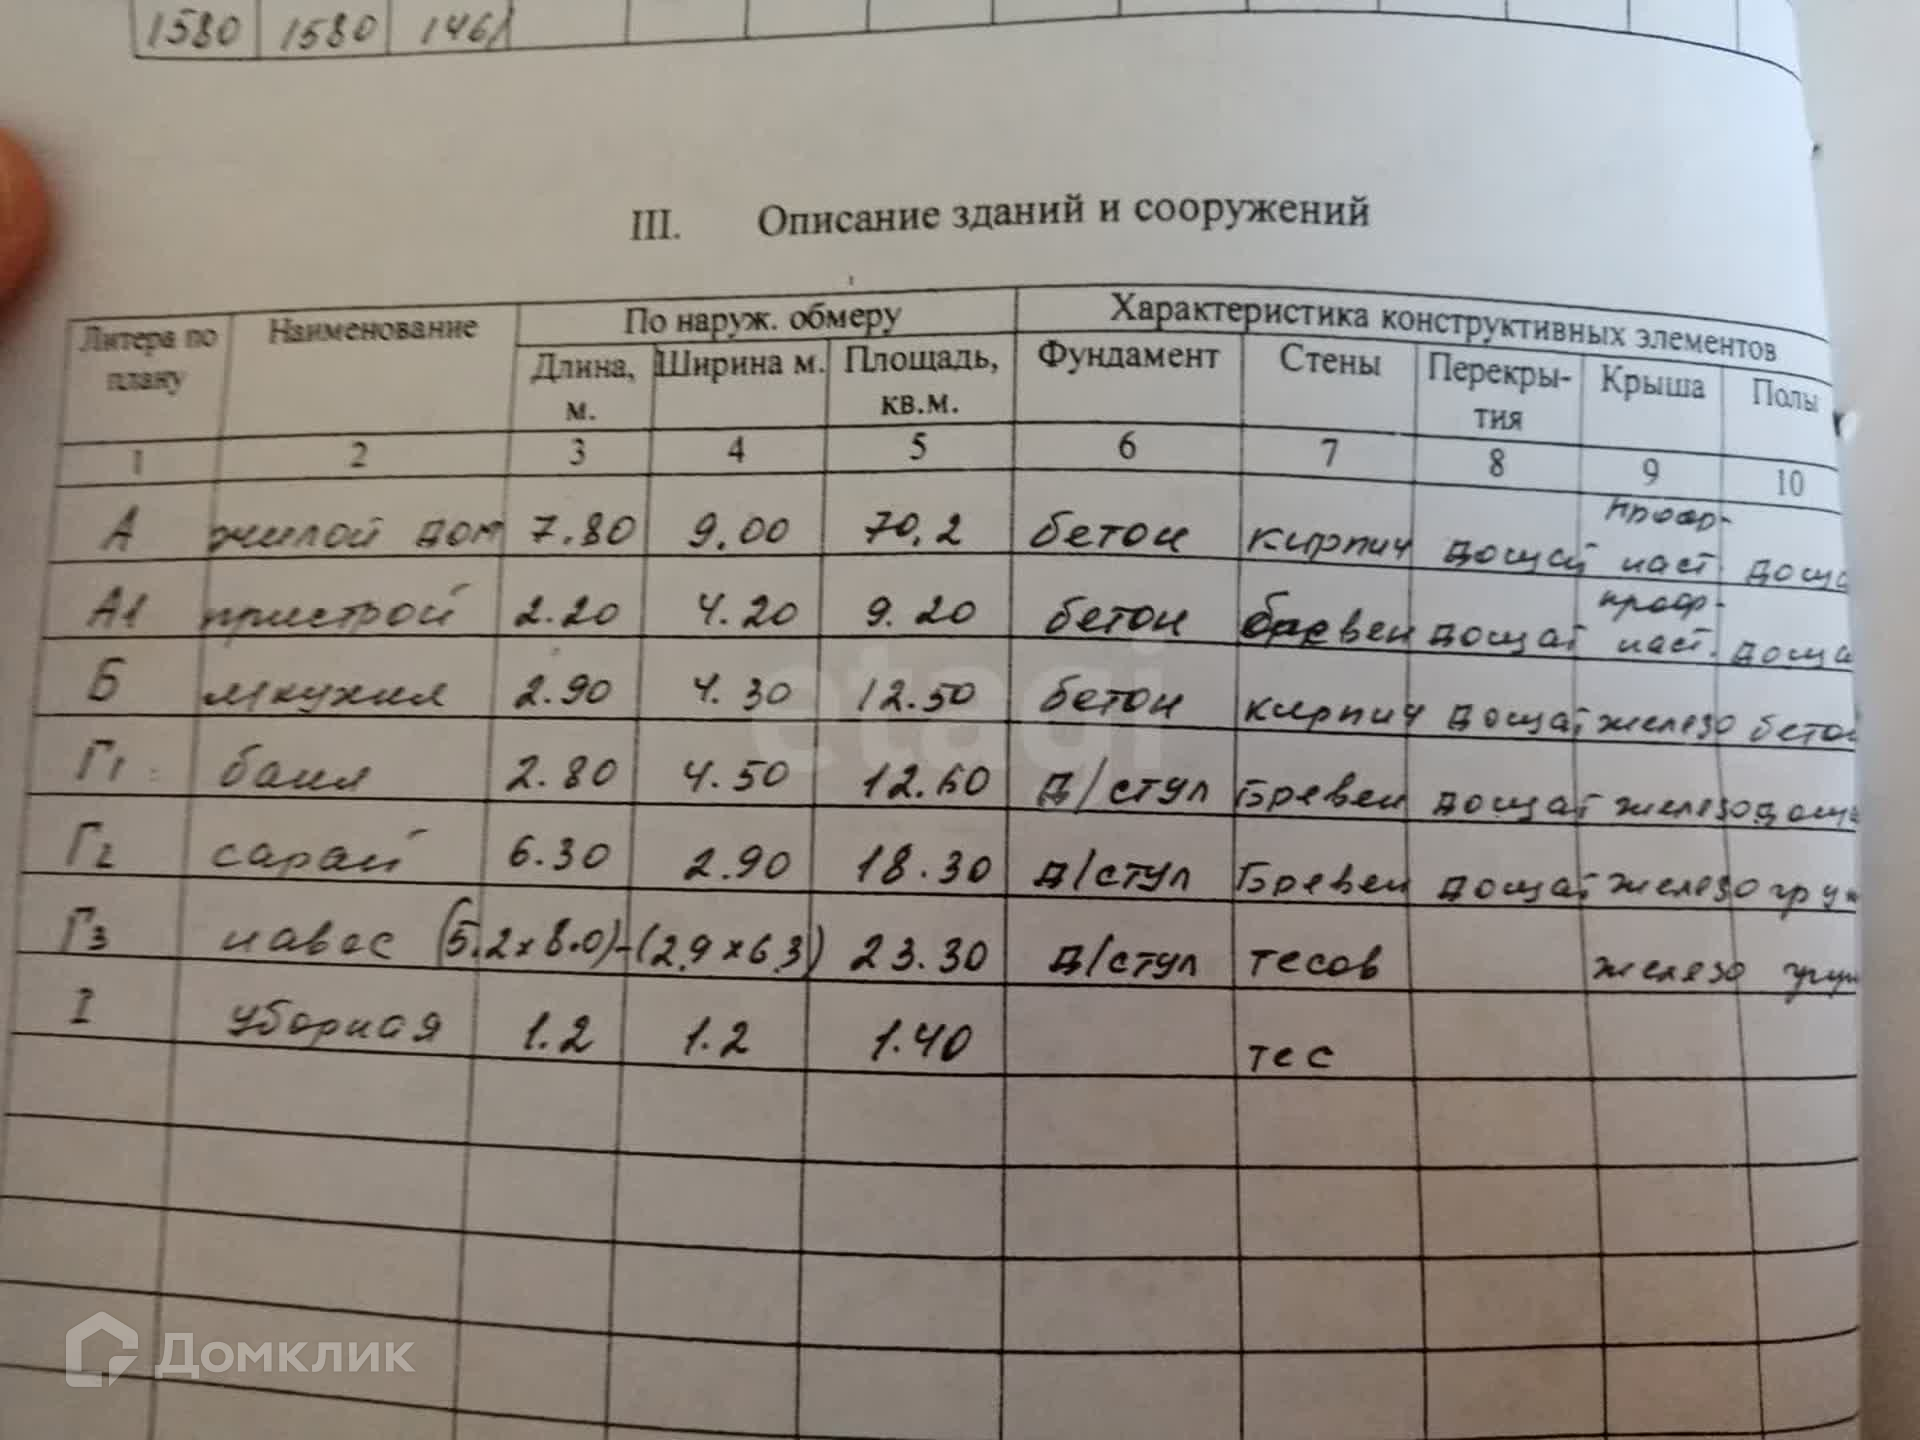 1580 1580 1461
III. Описание зданий и сооружений
Литера по плану Наименование По наруж. обмеру Характеристика конструктивных элементов
Длина, м. Ширина м. Площадь, кв.м. Фундамент Стены Перекры-тия Крыша Полы
1 2 3 4 5 6 7 8 9 10
А жилой дом 7.80 9.00 70.2 бетон кирпич дощат проф-наст. доща
А1 пристрой 2.20 4.20 9.20 бетон бревен дощат проф-наст. доща
Б л.кухня 2.90 4.30 12.50 бетон кирпич дощат железо бетон
Г1 баня 2.80 4.50 12.60 д/стул Бревен дощат железо доща
Г2 сарай 6.30 2.90 18.30 д/стул Бревен дощат железо грун
Г3 навес (5.2х8.0)-(2.9х6.3) 23.30 д/стул тесов железо грун
I уборная 1.2 1.2 1.40 тес
etagi
Домклик